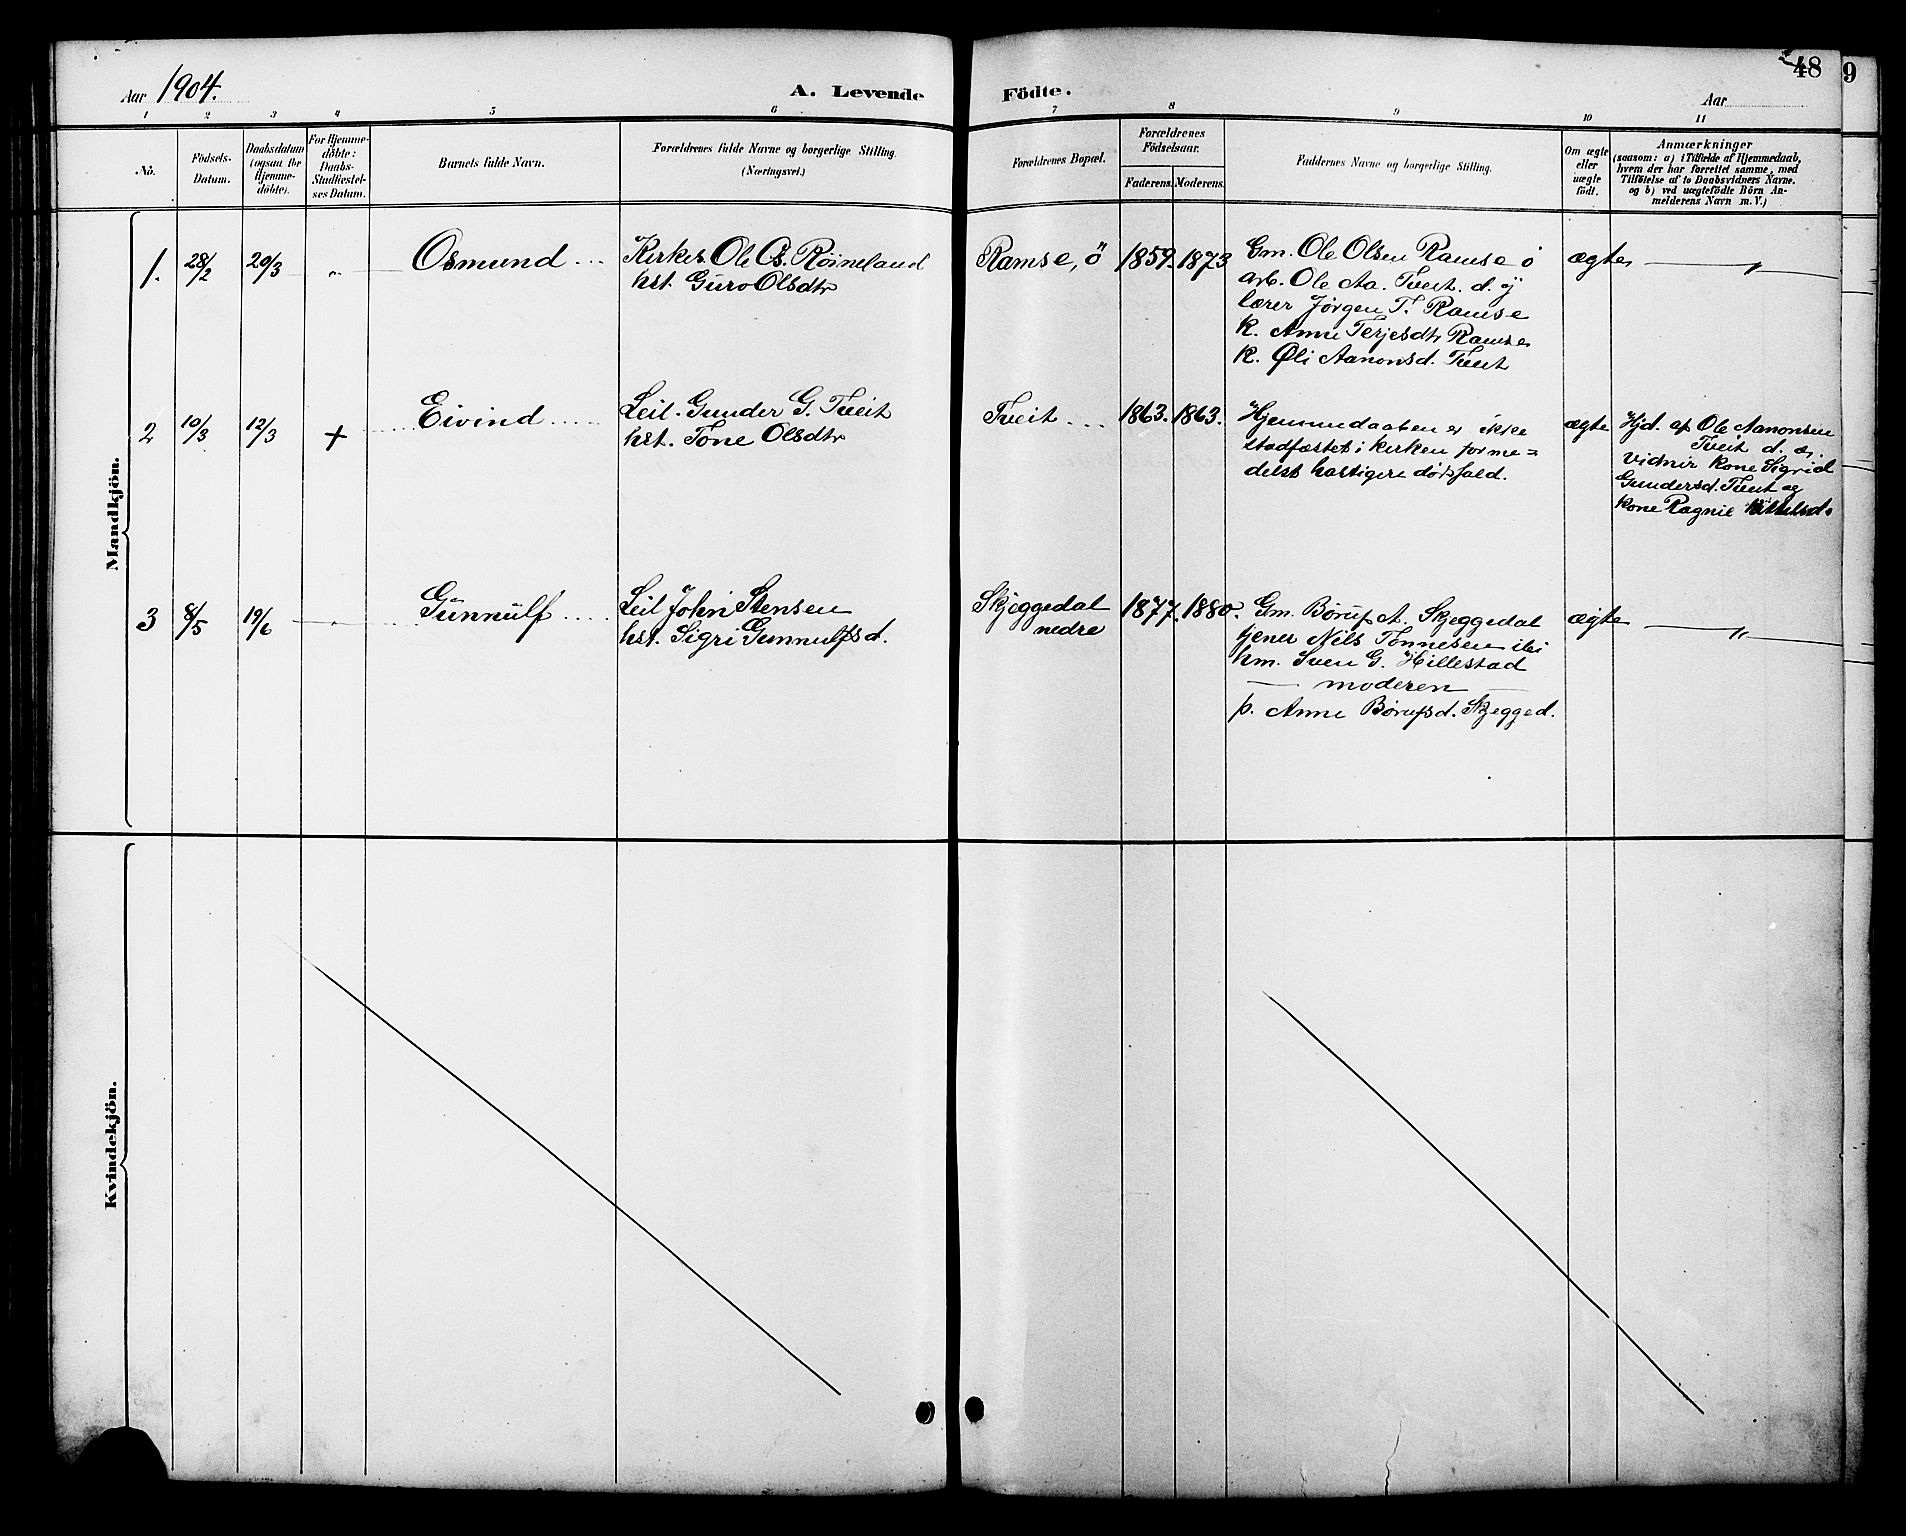 48
9
Aar 1904.
A. Levende Födte.
Aar
1 2 3 4 5 6 7 8 9 10 11
No.
Födsels-
Datum.
Daabsdatum
(ogsaa for
Hjemme-
döbte).
For Hjemme-
döbte:
Daabs-
Stadfæstel-
ses Datum.
Barnets fulde Navn.
Forældrenes fulde Navne og borgerlige Stilling.
(Næringsvei.)
Forældrenes Bopæl.
Forældrenes
Födselsaar.
Faderens. Moderens.
Faddernes Navne og borgerlige Stilling.
Om ægte
eller
uægte
födt.
Anmærkninger
(saasom: a) i Tilfælde af Hjemmedaab,
hvem der har forrettet samme, med
Tilföielse af to Daabsvidners Navne.
og b) ved uægtefödte Börn An-
melderens Navn m. V.)
Mandkjön.
1. 28/2 20/3 - " - Osmund ...
Kirkes. Ole Os. Røineland
hst. Guro Olsdtr
Ramse, ö
1859. 1873
Gm. Ole Olsen Ramse ö
arb. Ole Aa. Tveit. d. y
lærer Jørgen T. Ramse
k. Anne Terjesdtr Ramse
k. Øli Aanonsd. Tveit
ægte — " —
2 10/3 12/3 + Eivind ......
Leil. Gunder G. Tveit
hst. Tone Olsdtr
Tveit ...
1863. 1863.
Hjemmedaaben er ikke
stadfæstet i kirken forme=
delst hastigere dødsfald.
ægte
Hjd. af Ole Aanonsen
Tveit d. æ.
Vidner kone Sigrid
Gundersd. Tveit og
kone Ragnil
3 8/5 19/6 - " - Gunnulf ....
Leil John Stensen
hst. Sigri Gunnulfsd.
Skjeggedal
nedre
1877. 1880.
Gm. Børuf A. Skjeggedal
tjener Nils Tønnesen ibi
hm. Sven G. Hillestad
— moderen —
p. Anne Børufsd. Skjegged.
ægte — " —
Kvindekjön.